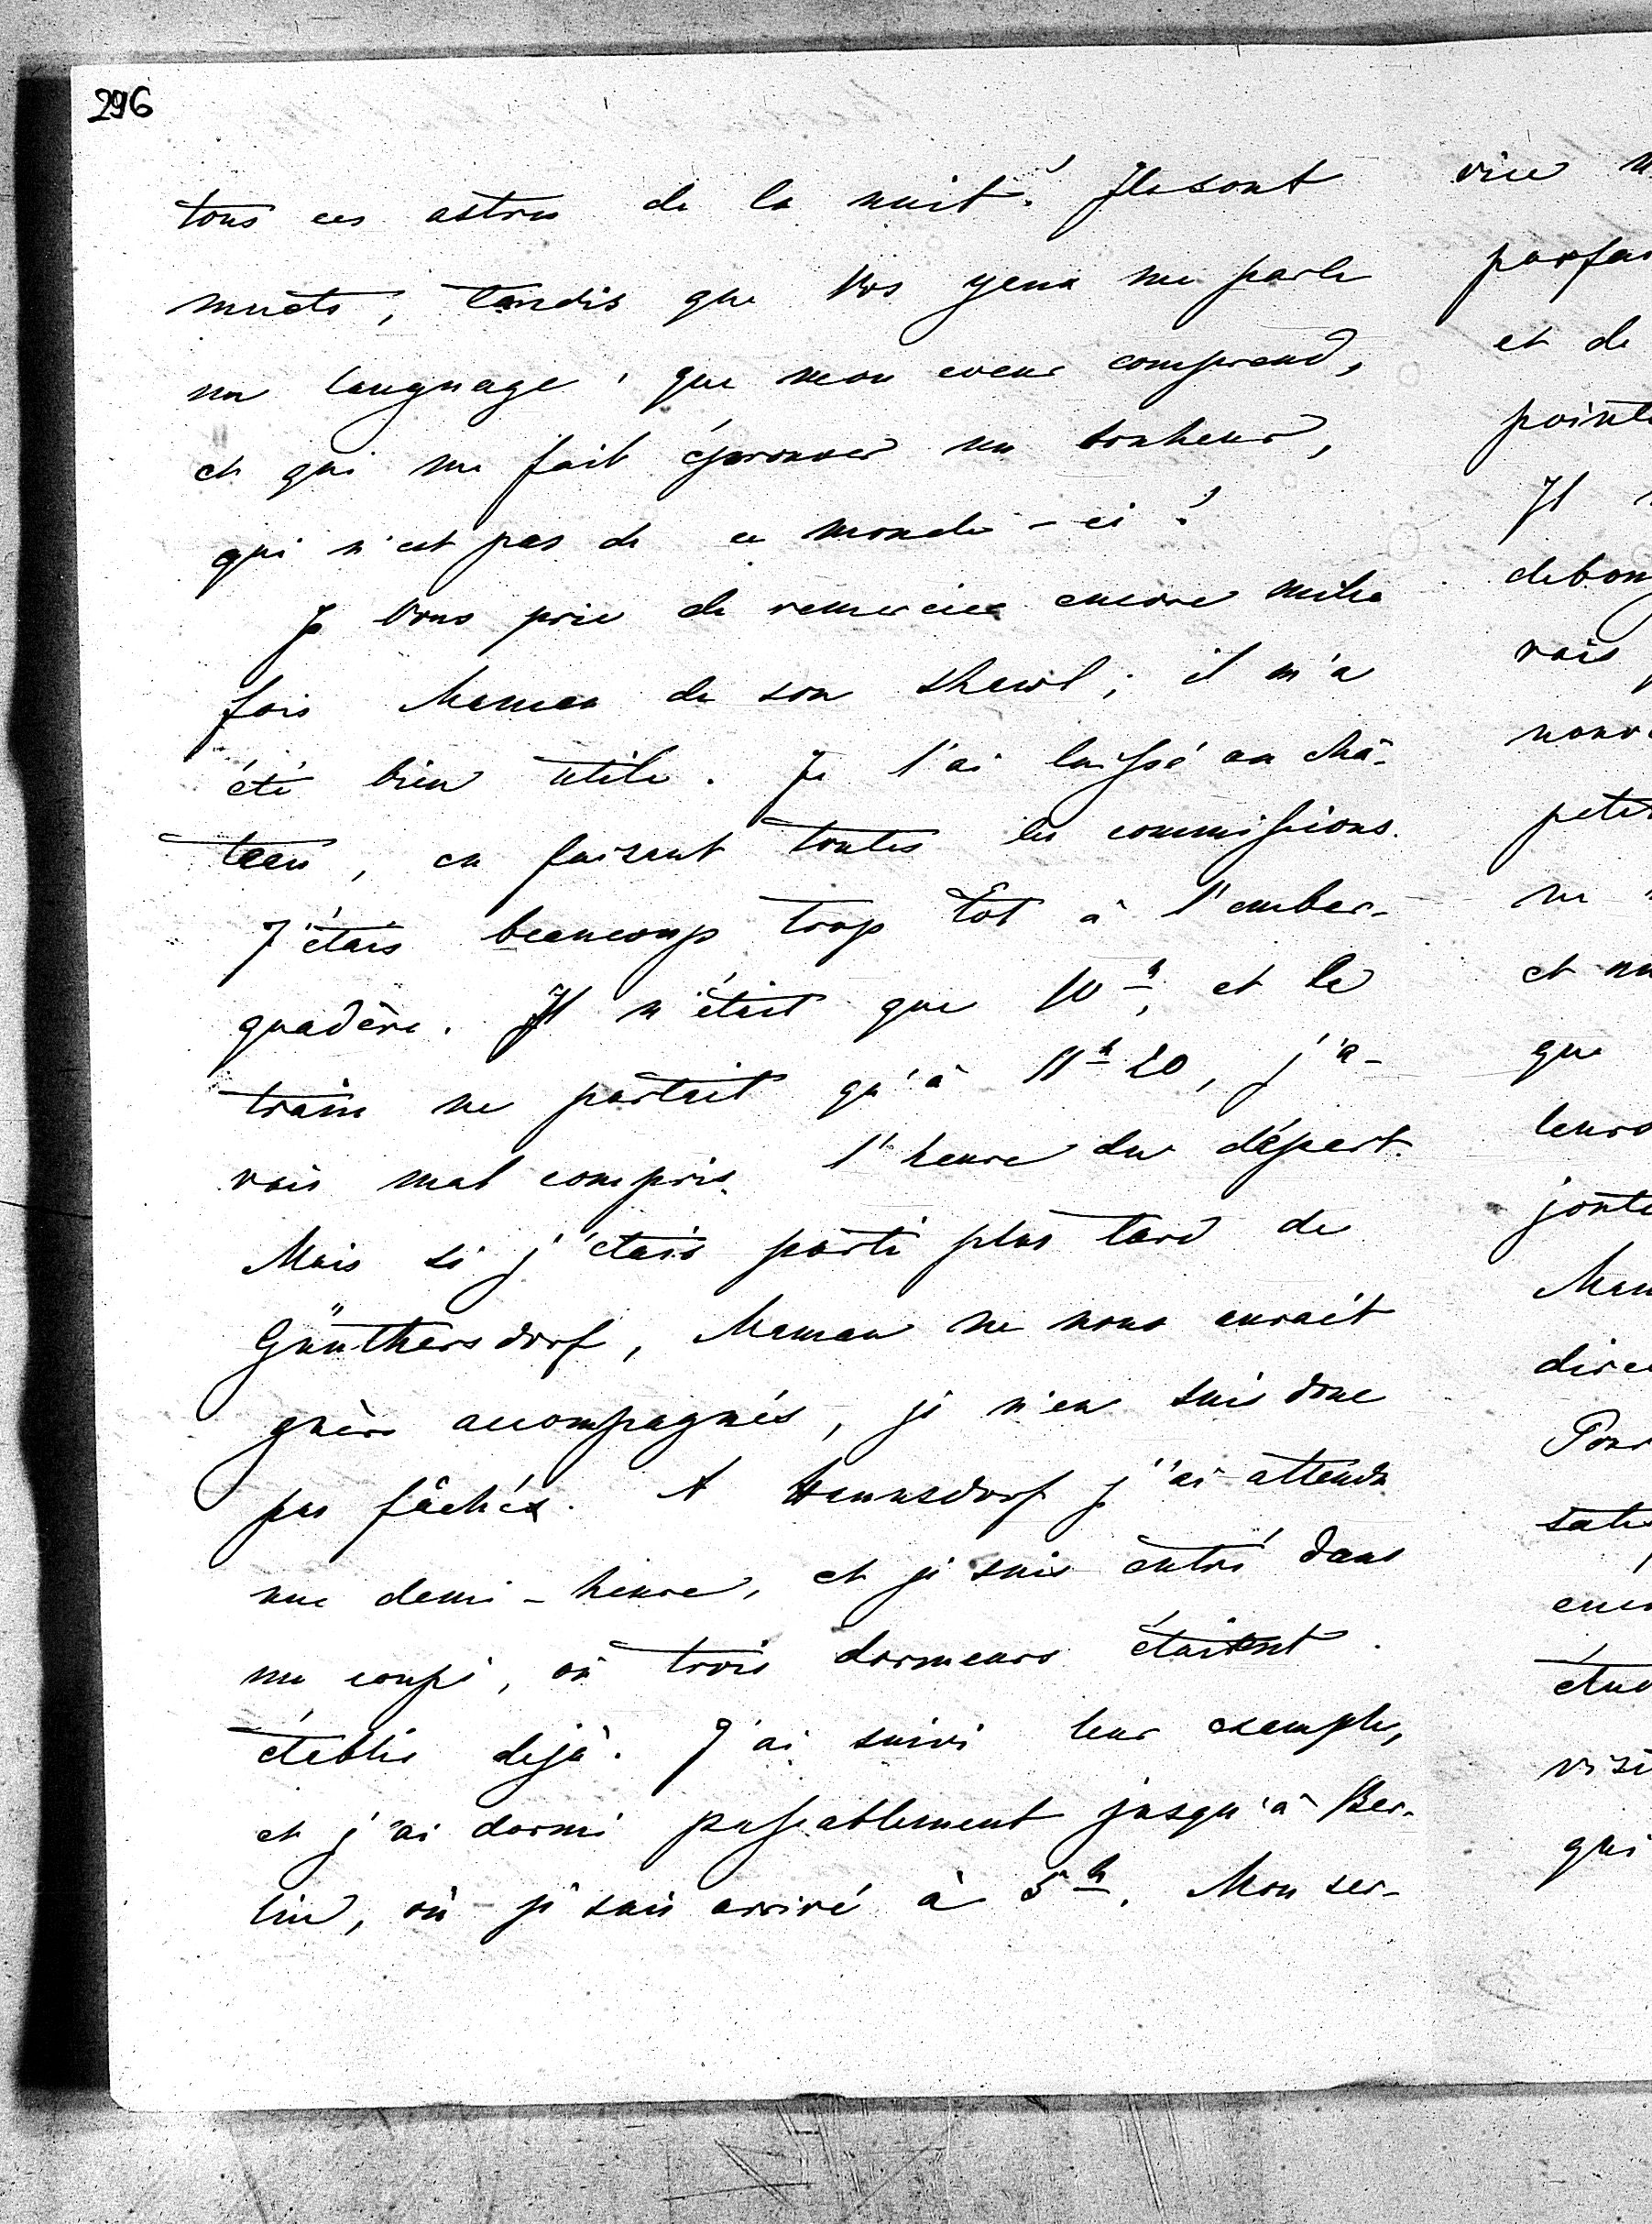 296
tous ces astres de la nuit! Ils sont
muets, tandis que Vos yeux me parle
un language, que mon coeur comprend,
et qui me fait éprouver un bonheur,
qui n'est pas de ce monde-ci!
Je Vous prie de remercier encore mille
fois Maman de son shawl; il m'a
été bien utile. Je l'ai laissé au châ-
teau, en faisant toutes les commissions.
J'étais beaucoup trop tôt à l'embar-
quadère. Il n'était que 10h, et le
train ne partait qu'à 11h 20, j'a-
vais mal compris l'heure du départ.
Mais si j'étais parti plus tard de
Günthersdorf, Maman ne nous aurait
guère accompagnés, je n'en suis donc
pas fâché. A Hannsdorf j'ai attendu
une demi-heure, et je suis entré dans
un coupé, où trois dormeurs étaient
établis dejà. J'ai suivi leur exemple,
et j'ai dormi passablement jusqu'à Ber-
lin, où je suis arrivé à 5h. Mon ser-
vice
et de
Il
vais
que
qui